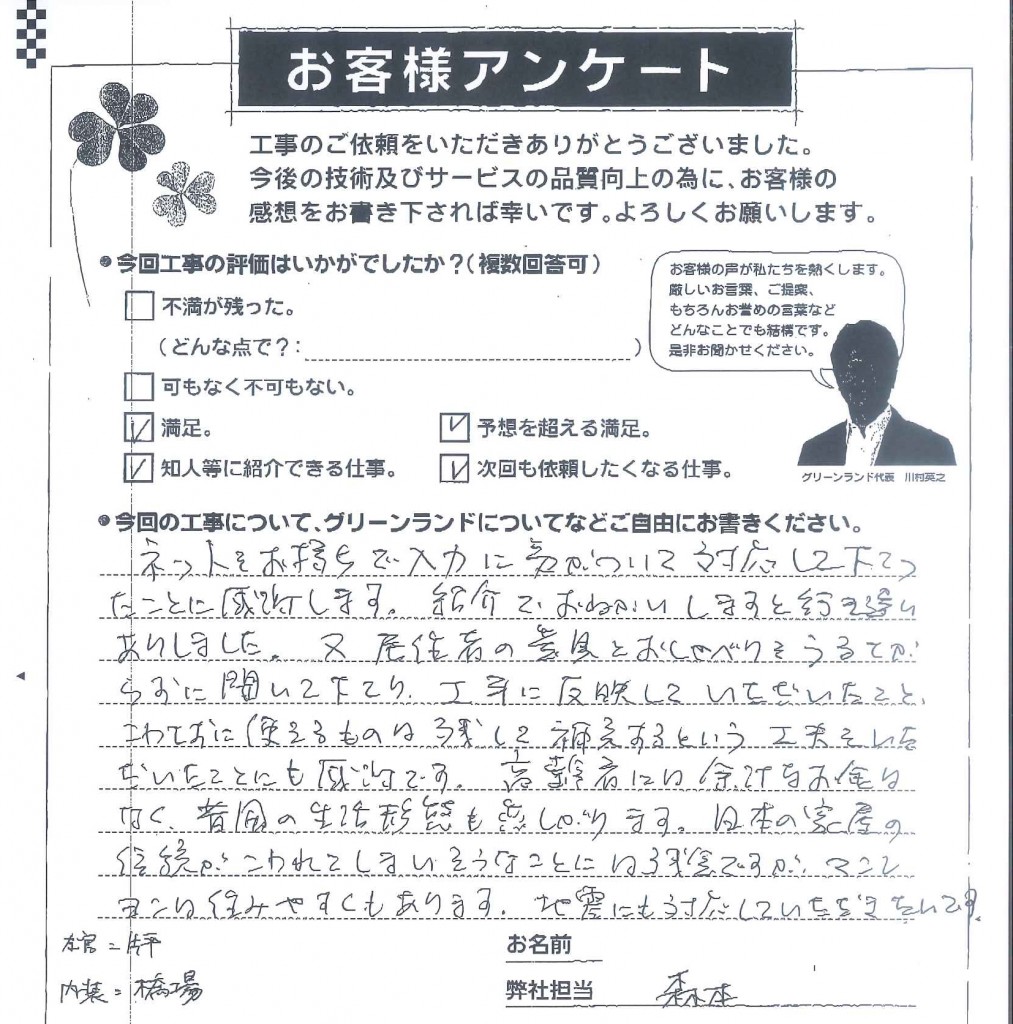 お客様アンケート
工事のご依頼をいただきありがとうございました。
今後の技術及びサービスの品質向上の為に、お客様の
感想をお書き下されば幸いです。よろしくお願いします。
今回工事の評価はいかがでしたか？（複数回答可）
お客様の声が私たちを熱くします。
厳しいお言葉、ご提案、
もちろんお誉めの言葉など
どんなことでも結構です。
是非お聞かせください。
不満が残った。
（どんな点で？：）
可もなく不可もない。
満足。
予想を超える満足。
知人等に紹介できる仕事。
次回も依頼したくなる仕事。
グリーンランド代表 川村英之
今回の工事について、グリーンランドについてなどご自由にお書きください。
ネットをお持ちで入力に気がついて対応して下さっ
たことに感謝します。紹介でおねがいしますと行き違い
ありしました。又居住者の意見とおしゃべりを
に聞いて下さり、工事に反映していただいたこと、
こわさずに使えるものは残して補充するという工夫をいた
だいたことにも感謝です。高齢者には余計なお金は
なく、昔風の生活形態も恋しがります。日本の家屋の
伝統がこわれてしまいそうなことには残念ですが、マンシ
ョンは住みやすくもあります。地震にも対応していただきたいです。
お名前
内装＝橋場
弊社担当 森本